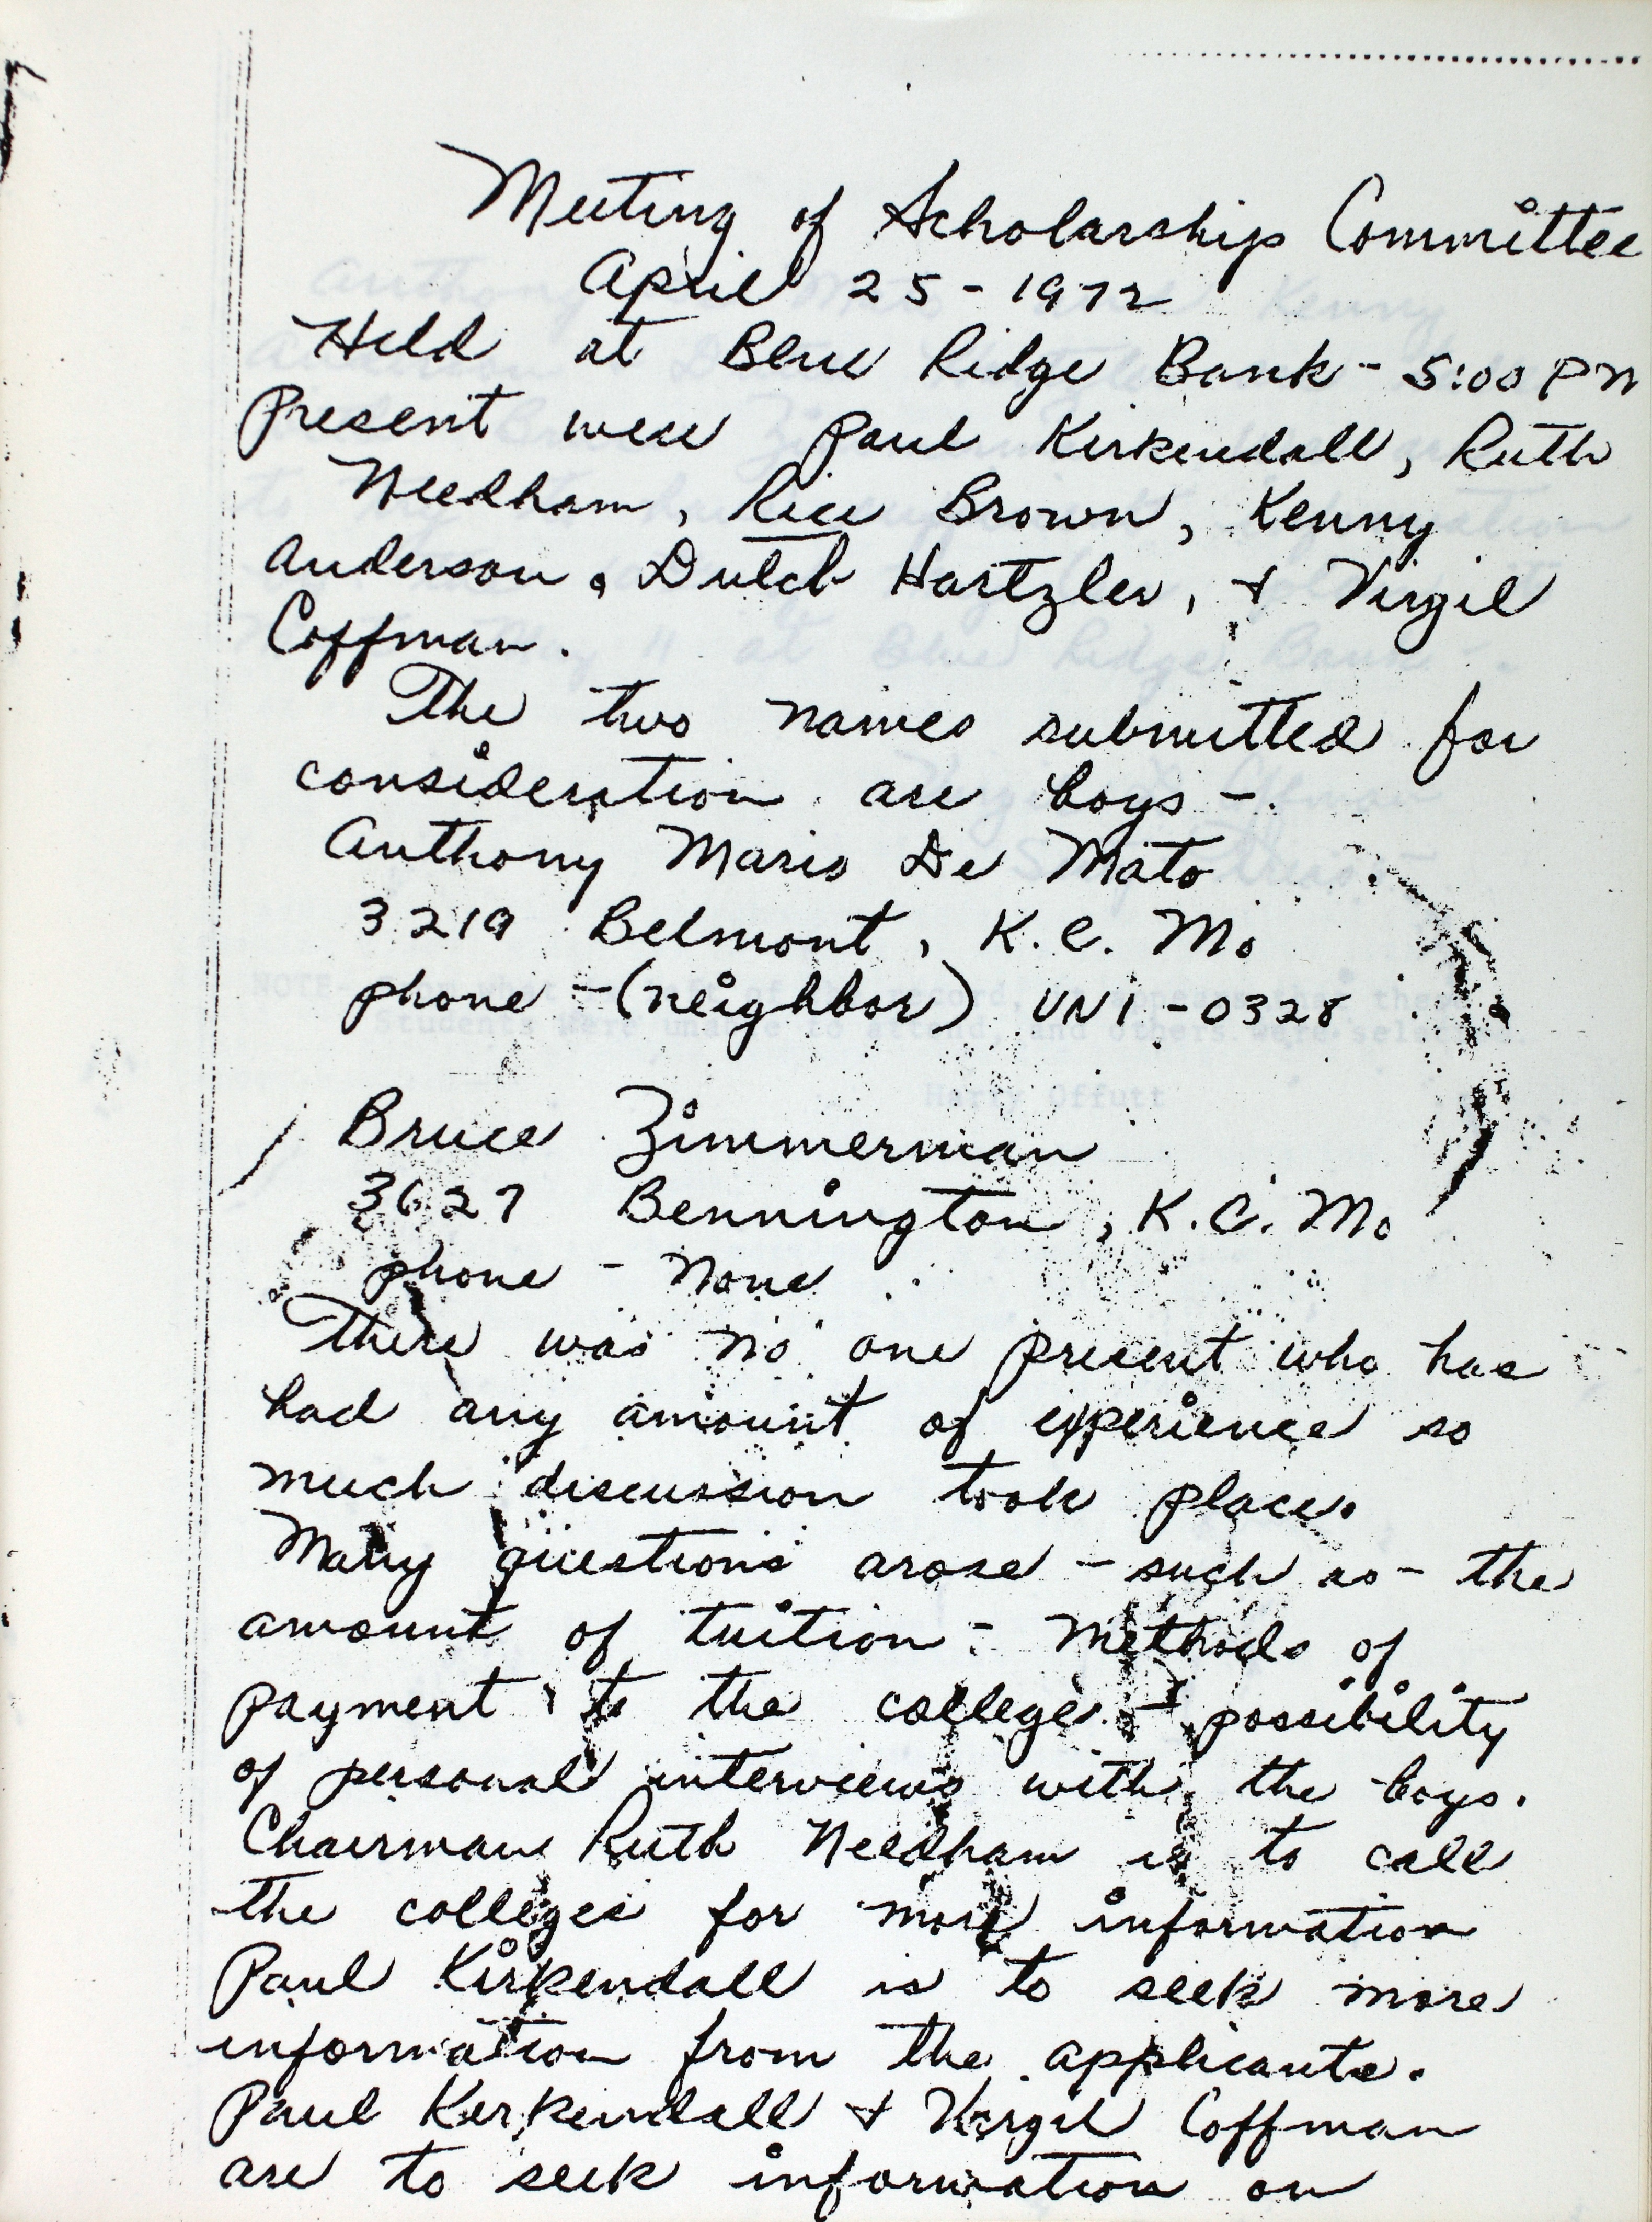 Meeting of Scholarship Committee
April 25-1972
Held at Blue Ridge Bank - 5:00 PM
Present were Paul Kirkendall, Ruth
Needham, Rice Brown, Kenny
Anderson, Dutch Hartzler, + Virgil
Coffman.
The two names submitted for
consideration are boys -
Anthony Mario De Mato
3219 Belmont, K.C. Mo
phone - (neighbor) UN1-0328
Bruce Zimmerman
3627 Bennington, K.C. Mo
phone - None
There was no one present who has
had any amount of experience so
much discussion took place.
Many questions arose - such as - the
amount of tuition - methods of
payment to the colleges - possibility
of personal interviews with the boys.
Chairman Ruth Needham is to call
the colleges for more information
Paul Kirkendall is to seek more
information from the applicants.
Paul Kirkendall + Virgil Coffman
are to seek information on